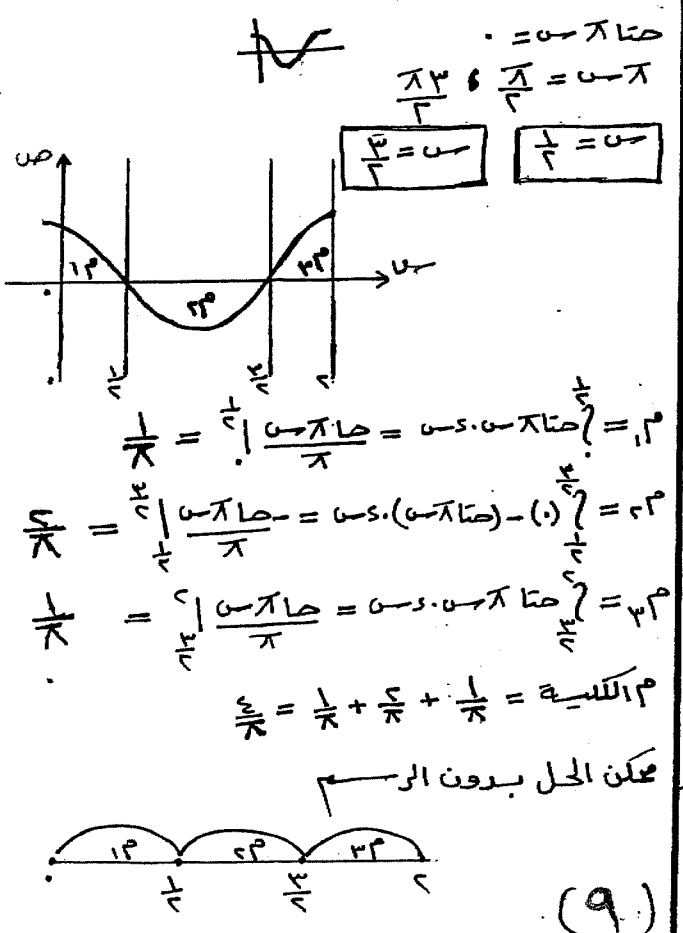 حتا π س = ٠
π س = π/٢ ، ٣π/٢
س = ١/٢
س = ٣/٢
ص
م١ م٢ م٣ س
٠ ١/٢ ٣/٢ ٢
م١ = ∫₀^(١/٢) حتا π س . ءس = حا π س/π |₀^(١/٢) = ١/π
م٢ = ∫_(١/٢)^(٣/٢) (٠) - (حتا π س) . ءس = -حا π س/π |_(١/٢)^(٣/٢) = ٢/π
م٣ = ∫_(٣/٢)^٢ حتا π س . ءس = حا π س/π |_(٣/٢)^٢ = ١/π
م الكلية = ١/π + ٢/π + ١/π = ٤/π
ممكن الحل بدون الرسم
م١ م٢ م٣
٠ ١/٢ ٣/٢ ٢
(٩)